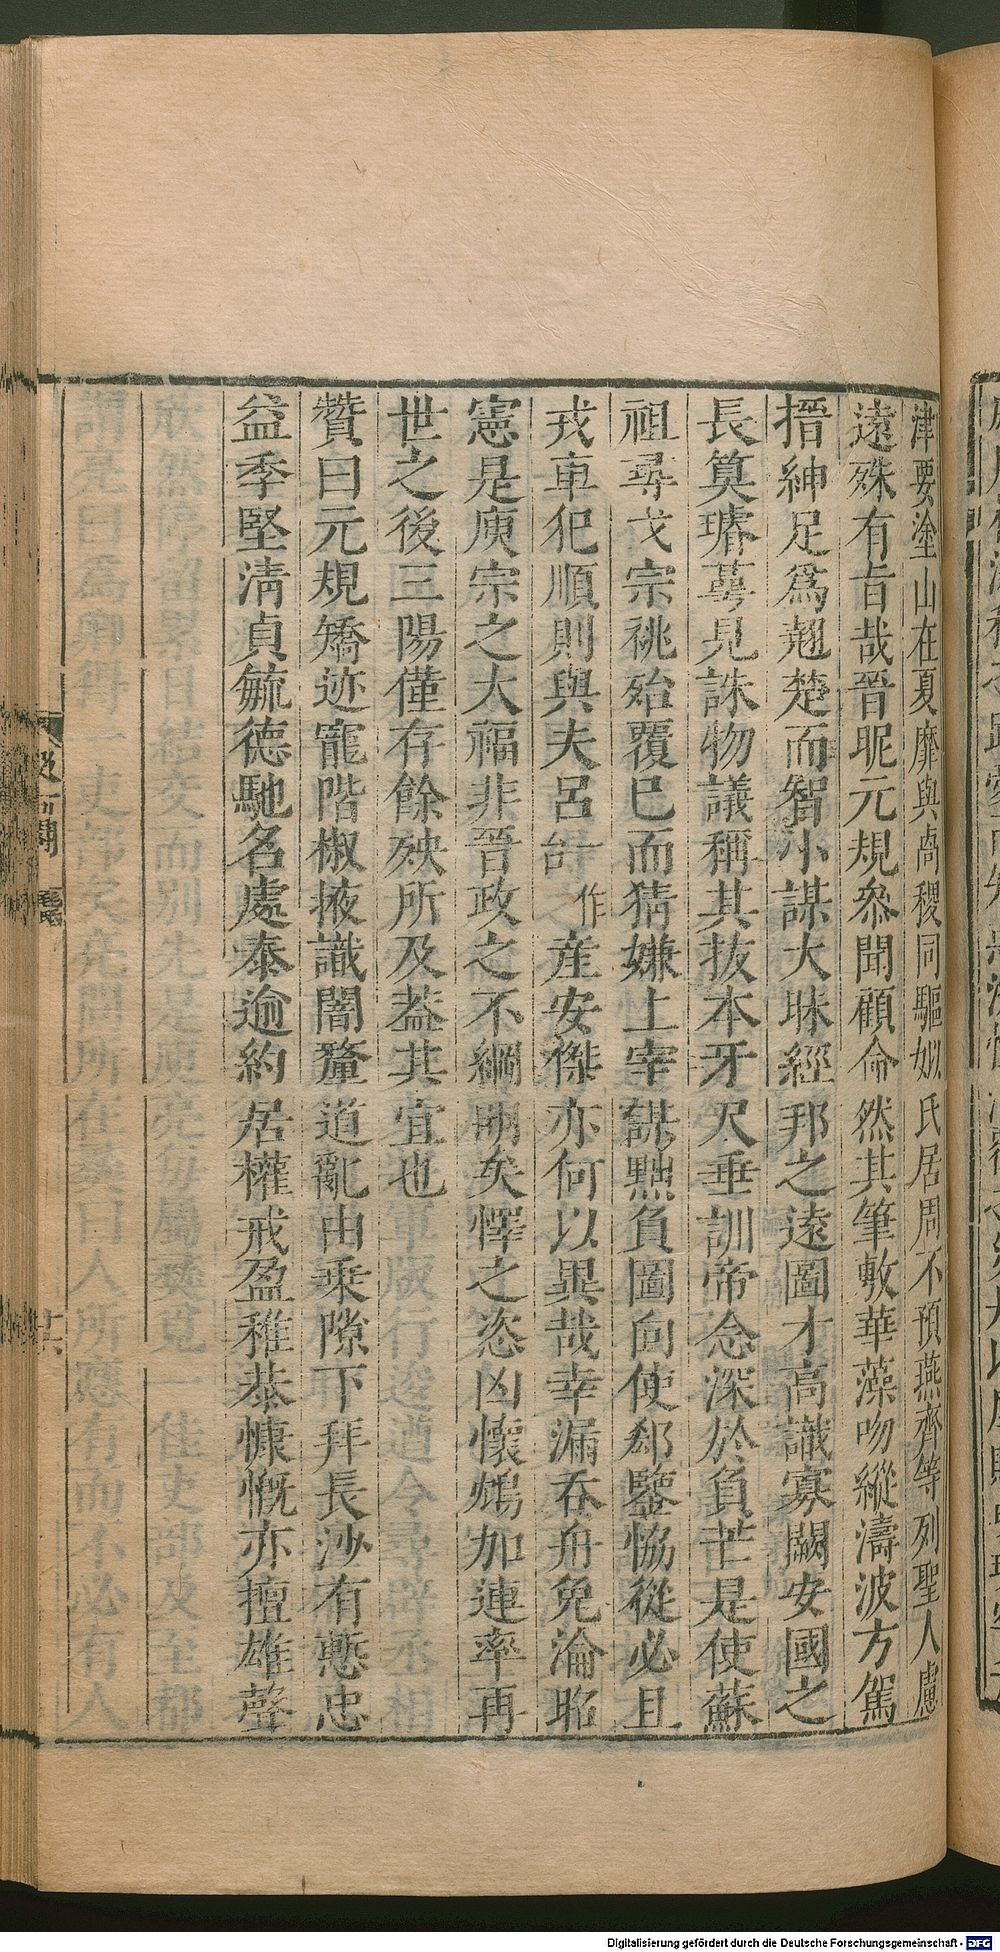 津要塗山在夏靡與卨稷同驅姒氏居周不預燕齊等列聖人慮
遠殊有旨哉晉昵元規叅聞顧命然其筆敷華藻吻縱濤波方駕
搢紳足爲翹楚而智小謀大昧經邦之遠圖才高識寡闕安國之
長筭璿萼見誅物議稱其拔本牙尺垂訓帝念深於負芒是使蘇
祖尋戈宗祧殆覆已而猜嫌上宰謀黜負圖向使郄鑒恊從必且
戎車犯順則與夫呂台作産安傑亦何以異哉幸漏吞舟免淪昭
憲是庾宗之大福非晉政之不綱明矣懌之恣凶懷鴆加連率再
世之後三陽僅存餘殃所及葢其宜也
贊曰元規矯迹寵階椒掖識闇釐道亂由乗隙下拜長沙有慙忠
益季堅淸貞毓德馳名處泰逾約居權戒盈稚恭慷慨亦擅雄聲
Digitalisierung gefördert durch die Deutsche Forschungsgemeinschaft - DFG